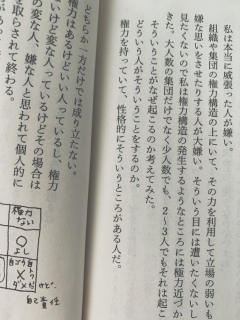 私は本当に威張った人が嫌い。
組織や集団の権力構造の上にいて、その力を利用して立場の弱いも
嫌な思いをさせたりする人が大嫌い。そういう目には遭いたくないし
見たくないので私は権力構造の発生するようなところには極力近づか
きた。大人数の集団だけでなく少人数でも、2〜3人でもそれは起こ
どういう人がそういうことをするのか。
そういうことがなぜ起こるのか考えてみた。
権力を持っていて、性格的にそういうところがある人だ。
どちらか一方だけでは成り立たない。
権力はあるけどいい人っているし、権力
いけど変な人っているけどその場合は
の変な人、嫌な人と思われて個人的に
を取らされて終わる。
権力
ない
○
よし
×
ダメだけど、
自己責任